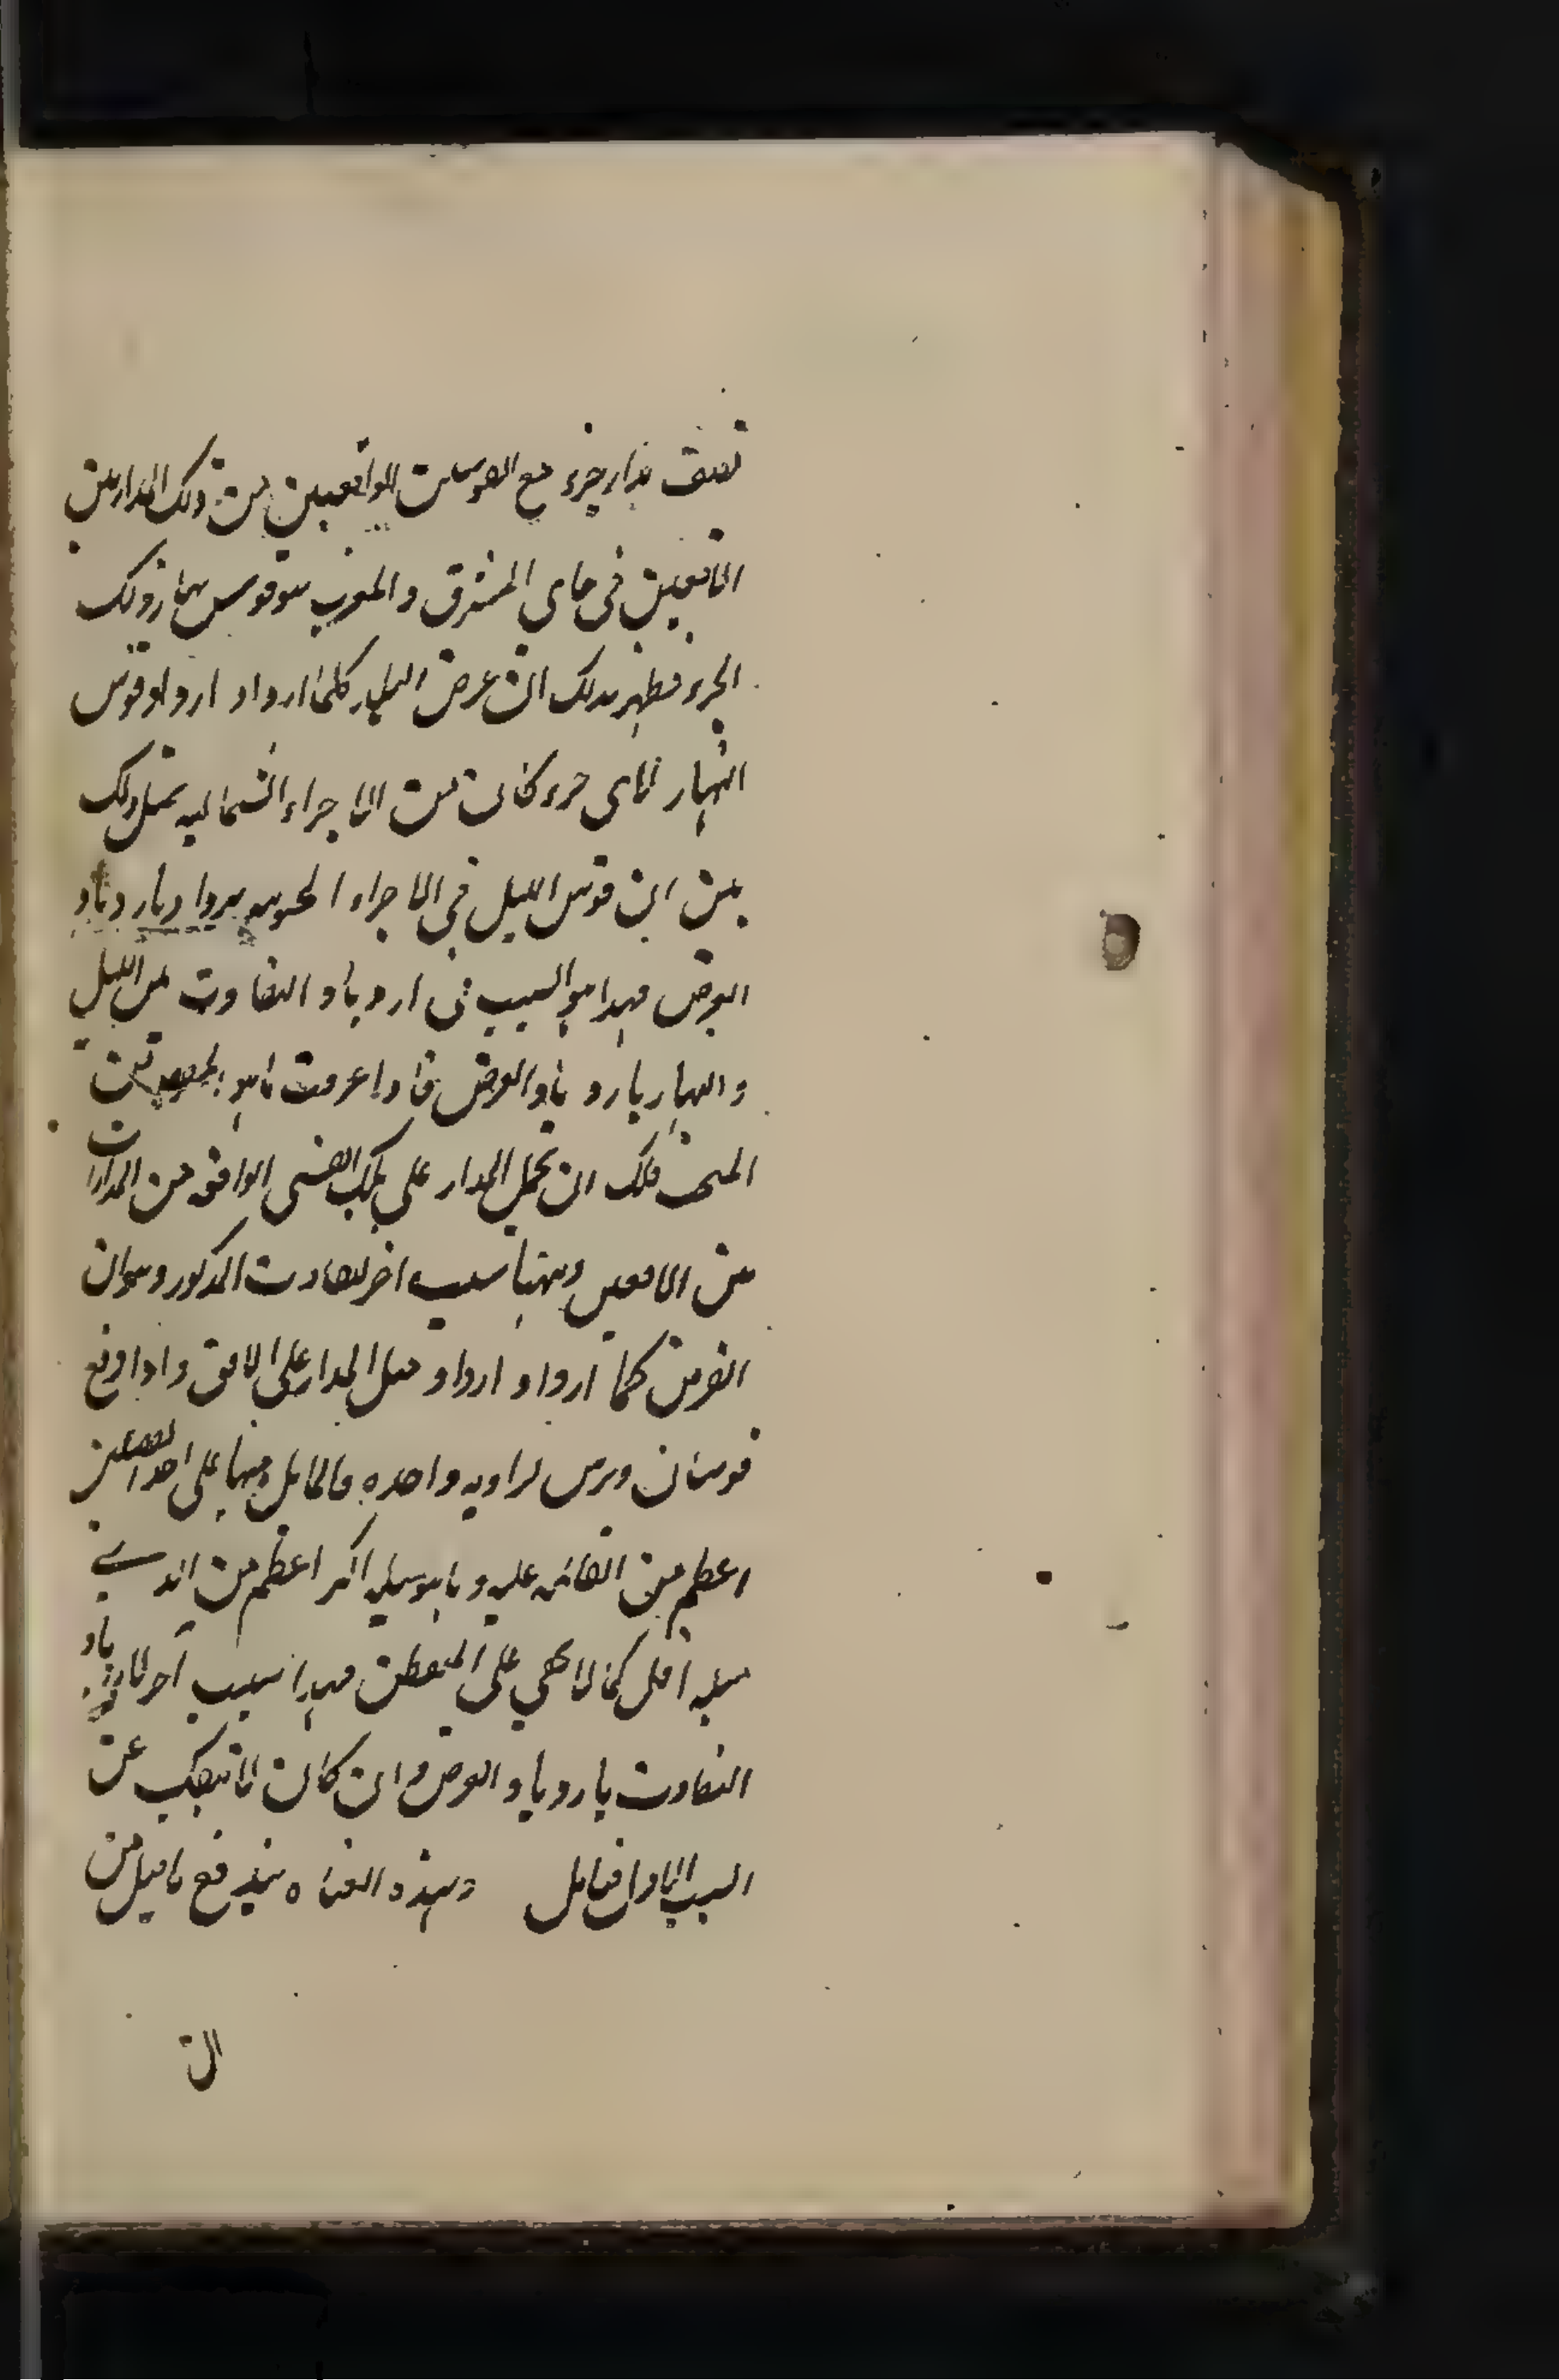 نصف مدار جزء مع القوسين الواقعتين من ذلك المدار بين
الافقين فى جابى المشرق والمغرب هو قوس نهار ذلك
الجزء فظهر بذلك ان عرض البلد كلما ازداد ازداد قوس
النهار لاى جزء كان من الاجزاء الشماليه بمثل ذلك
يبين ان قوس الليل فى الاجزاء الجنوبيه يزداد بازدياد
العرض فهذا هو السبب فى ازدياد التفاوت بين الليل
والنهار بازدياد العرض فاذا عرفت ما هو
المبحث فلك ان تحمل المدار على تلك القسى الواقعه من المدارات
بين الافقين وههنا سبب اخر للتفاوت المذكور وهو ان
العرض كلما ازداد ازداد ميل المدار على الافق واذا وقع
قوسان وترين لزاويه واحده فالمايل منها على احد الضلعين
اعظم من القائمه عليه وما هو ميله اكثر اعظم من الذى
ميله اقل كما لا يخفى على المتفطن فهذا سبب اخر لازدياد
التفاوت بازدياد العرض وان كان لا ينفك عن
السبب الاول فتامل وبهذه العناه يندفع ما قيل من
ان